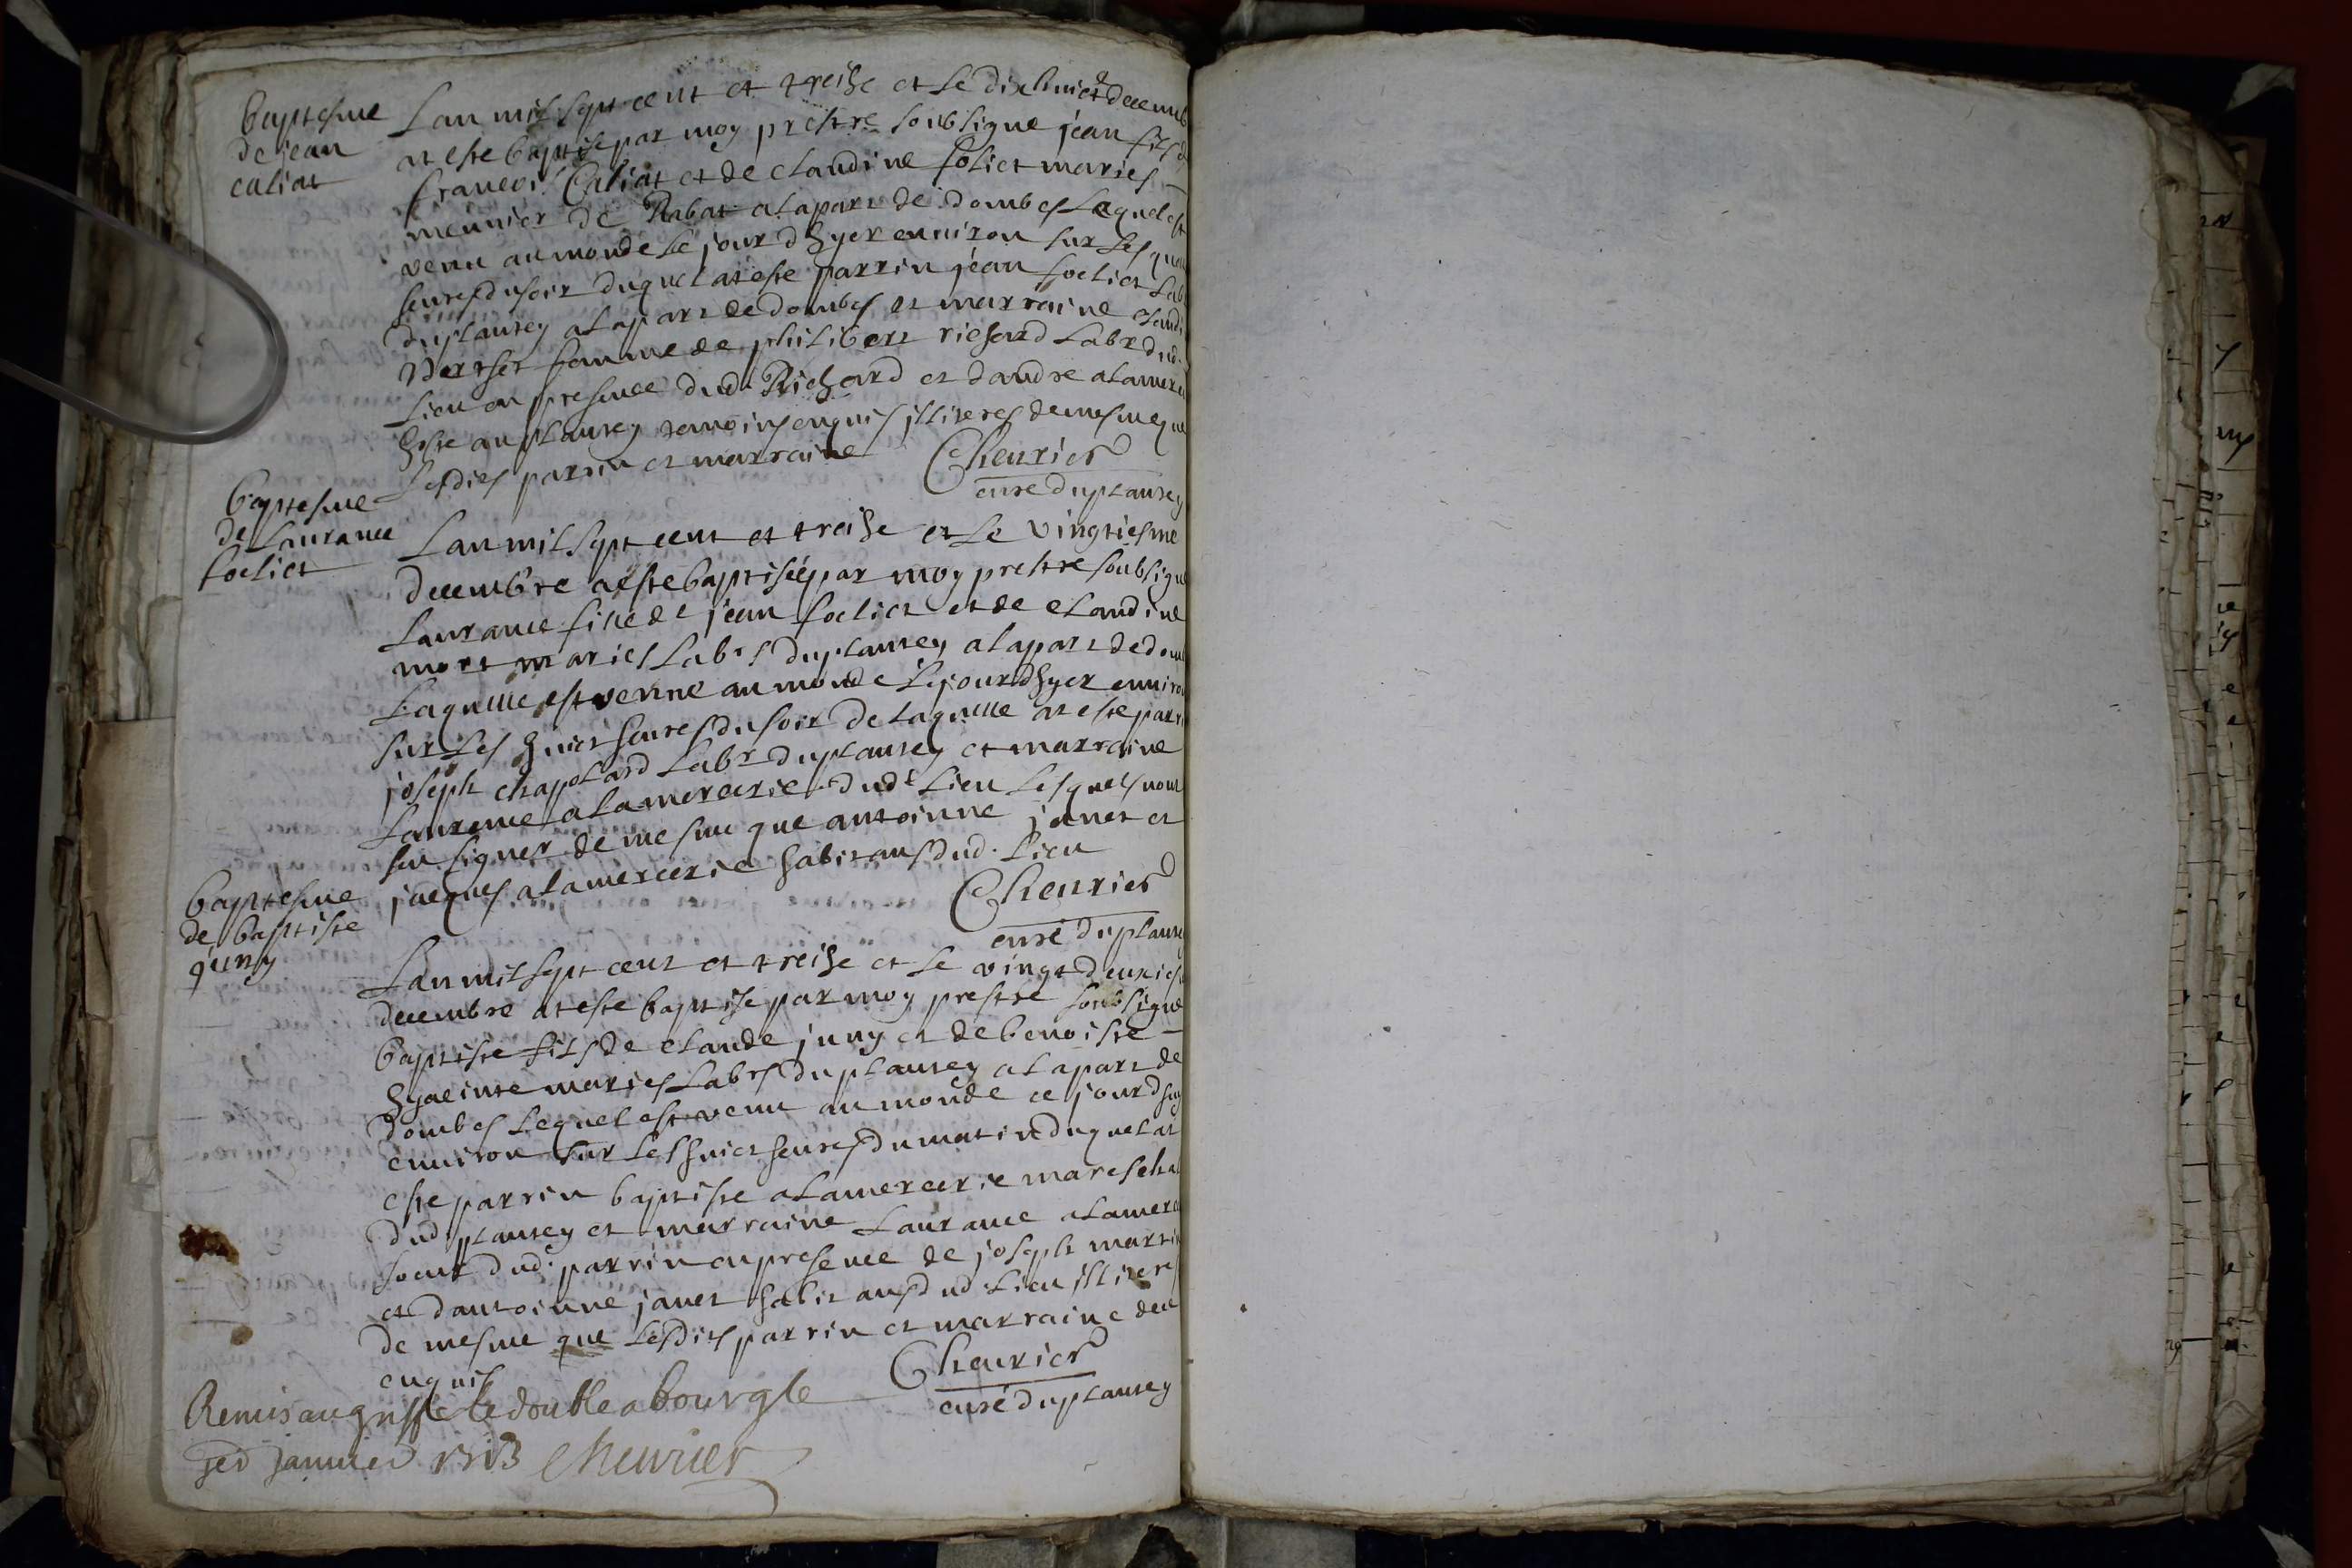 baptesme
de jean
caliat
Lan mil sept cent et treise et le dixhuict decemb
at este baptise par moy prestre soubsigne jean fils de
francois Caliat et de claudine foliet maries
meunier de Rabat a la part de dombes lequel est
venu au monde le jour dhyer environ sur les qua
heures du soir duquel at este parrin jean foeliet lab
du plantey a la part de dombes et marraine claudi
femme de philibert richard labr dud.
lieu en presence dud. Richard et dandre alamerc
hoste au plantey temoins enquis illiteres de mesme que
lesdits parrin et marraine Cheurier
curé du plantey
baptesme
de Laurance
foeliet
Lan mil sept cent et treise et le vingtiesme
decembre a este baptisée par moy prestre soubsigne
Laurance fille de jean foeliet et de claudine
mort maries labrs du plantey a la part de dom
Laquelle est venue au monde le jour dhyer enviro
sur les huict heures du soir de laquelle at este parri
joseph chapolard labr du plantey et marraine
Laurence alamercerie dudt lieu lesquels nont
seu signer de mesme que antoinne janet et
jacques alamercerie habitans dud. lieu
Cheurier
curé du plante
baptesme
de baptiste
juny
Lan mil sept cent et treise et le vingt deuxies
decembre at este baptise par moy prestre soubsigne
baptiste fils de claude juny et de benoiste
hyacinte maries labrs du plantey a la part de
dombes lequel est venu au monde ce jourdhuy
environ sur les huict heures du matin duquel at
este parrin baptiste alamercerie mareschal
dud plantey et marraine Laurance alamerc
soeur dud. parrin en presence de joseph marti
et dantoinne janet habitans dud lieu illiteres
de mesme que lesdits parrin et marraine de ce
enquis
Cheurier
curé du plantey
Remis au greffe le double a bourg le
janvier 1313 cheurier